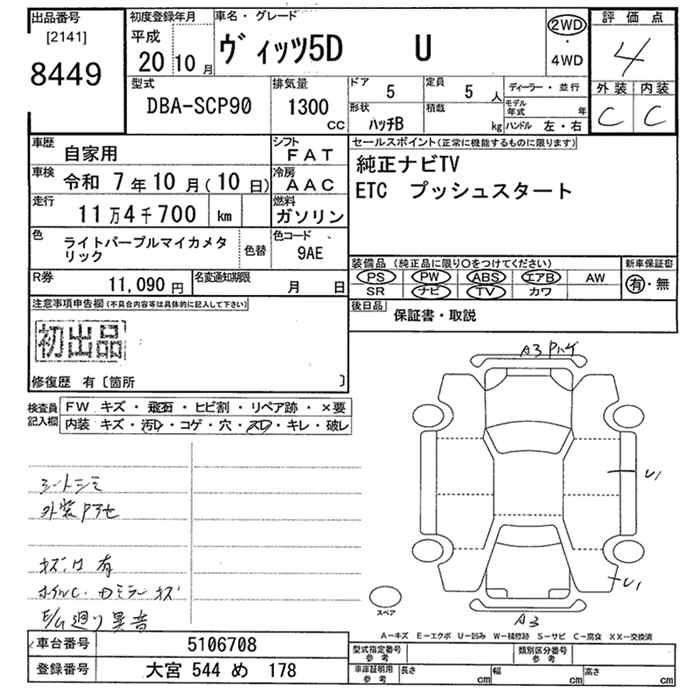 出品番号
[2141]
8449
初度登録年月
平成
20 10 月
車名・グレード
ヴィッツ5D U
2WD
・
4WD
評価点
4
外装 内装
C C
型式
DBA-SCP90
排気量
1300
CC
ドア
5
定員
5 人
形状
ハッチB
積載
kg
ディーラー・並行
モデル年式 年
ハンドル 左・右
車歴
自家用
シフト
FAT
車検
令和 7年10月(10日)
冷房
AAC
走行
11万4千700 km
燃料
ガソリン
色
ライトパープルマイカメタリック
色替
色コード
9AE
R券
11,090円
名変通知期限
月 日
セールスポイント(正常に機能するものに限ります)
純正ナビTV
ETC プッシュスタート
装備品 (純正品に限り○をつけてください)
PS PW ABS エアB AW
SR ナビ TV カワ
新車保証書
有・無
後日品
保証書・取説
注意事項申告欄(不具合内容等は具体的に記入して下さい)
初出品
修復歴 有〔箇所 〕
検査員記入欄
FW キズ・飛石・ヒビ割・リペア跡・×要
内装 キズ・汚レ・コゲ・穴・スレ・キレ・破レ
シートシミ
外装アセ
キズ.凹 有
ホイルC.
キズ
E/G廻り異音
A3
U1
U1
A3
スペア
A−キズ E−エクボ U−凹み W−補修跡 S−サビ C−腐食 XX−交換済
車台番号
5106708
登録番号
大宮 544 め 178
型式指定番号
参考
類別区分番号
参考
車庫証明用
参考
長さ cm
幅 cm
高さ cm